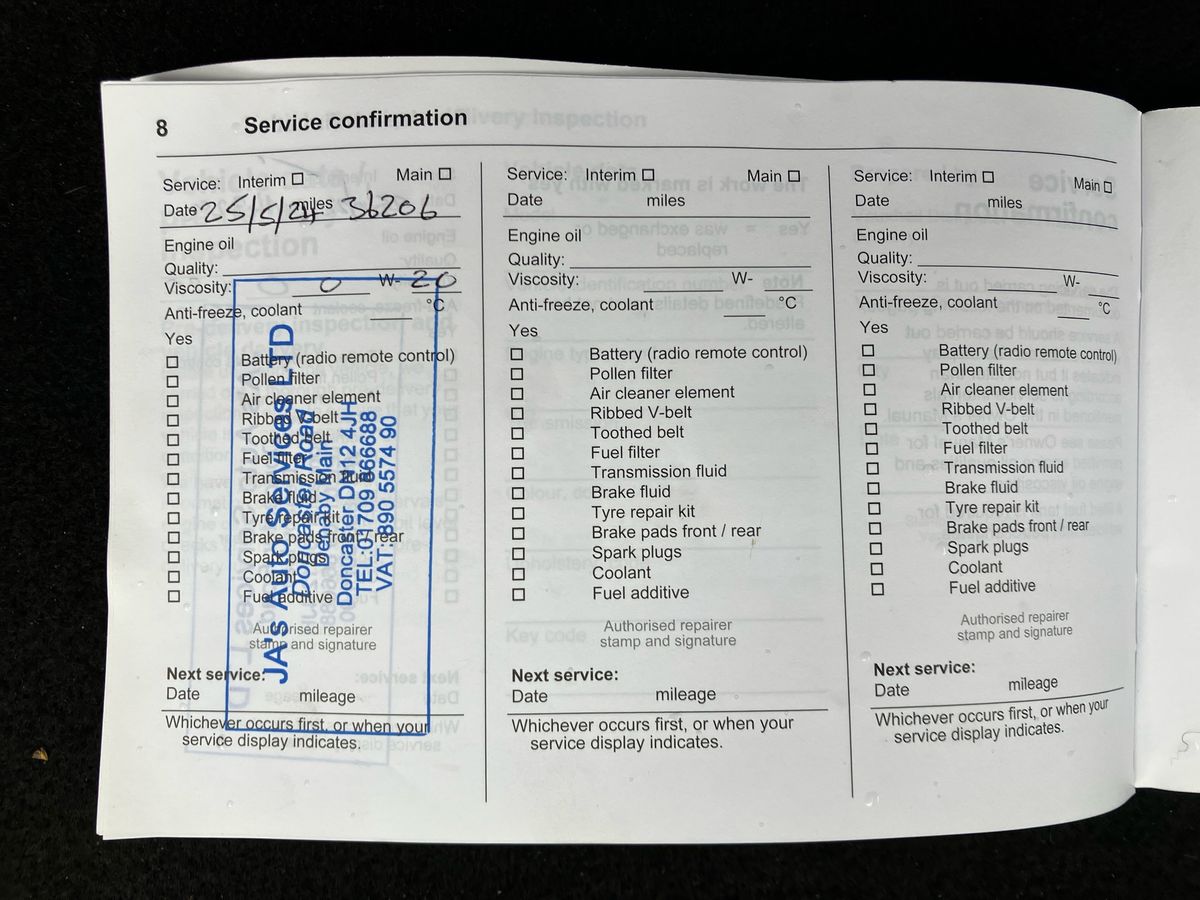 8 Service confirmation
Service: Interim Main
Date 25/5/24 miles 36206
Engine oil
Quality:
Viscosity: 0 W- 20
Anti-freeze, coolant °C
Yes
Battery (radio remote control)
Pollen filter
Air cleaner element
Ribbed V-belt
Toothed belt
Fuel filter
Transmission fluid
Brake fluid
Tyre repair kit
Brake pads front / rear
Spark plugs
Coolant
Fuel additive
Authorised repairer
stamp and signature
Next service:
Date mileage
Whichever occurs first, or when your
service display indicates.
JA's Auto Services LTD
Doncaster Road
Denaby Main
Doncaster DN12 4JH
TEL:01709 866688
VAT:890 5574 90
Service: Interim Main
Date miles
Engine oil
Quality:
Viscosity: W-
Anti-freeze, coolant °C
Yes
Battery (radio remote control)
Pollen filter
Air cleaner element
Ribbed V-belt
Toothed belt
Fuel filter
Transmission fluid
Brake fluid
Tyre repair kit
Brake pads front / rear
Spark plugs
Coolant
Fuel additive
Authorised repairer
stamp and signature
Next service:
Date mileage
Whichever occurs first, or when your
service display indicates.
Service: Interim Main
Date miles
Engine oil
Quality:
Viscosity: W-
Anti-freeze, coolant °C
Yes
Battery (radio remote control)
Pollen filter
Air cleaner element
Ribbed V-belt
Toothed belt
Fuel filter
Transmission fluid
Brake fluid
Tyre repair kit
Brake pads front / rear
Spark plugs
Coolant
Fuel additive
Authorised repairer
stamp and signature
Next service:
Date mileage
Whichever occurs first, or when your
service display indicates.